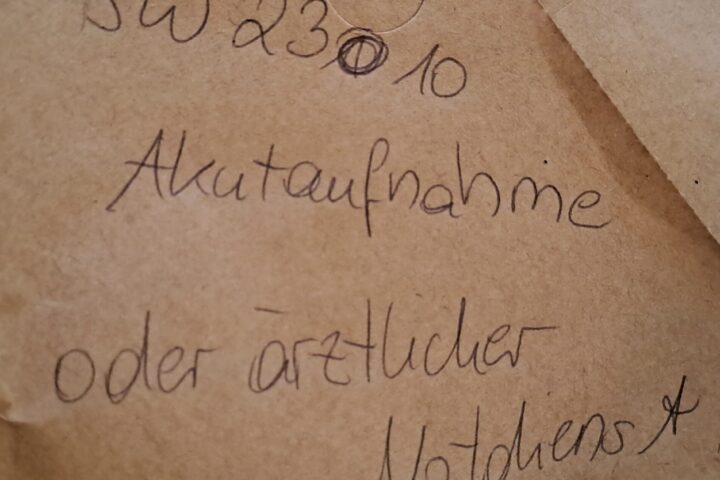 SW 23 10
Akutaufnahme
oder ärztlicher
Notdienst